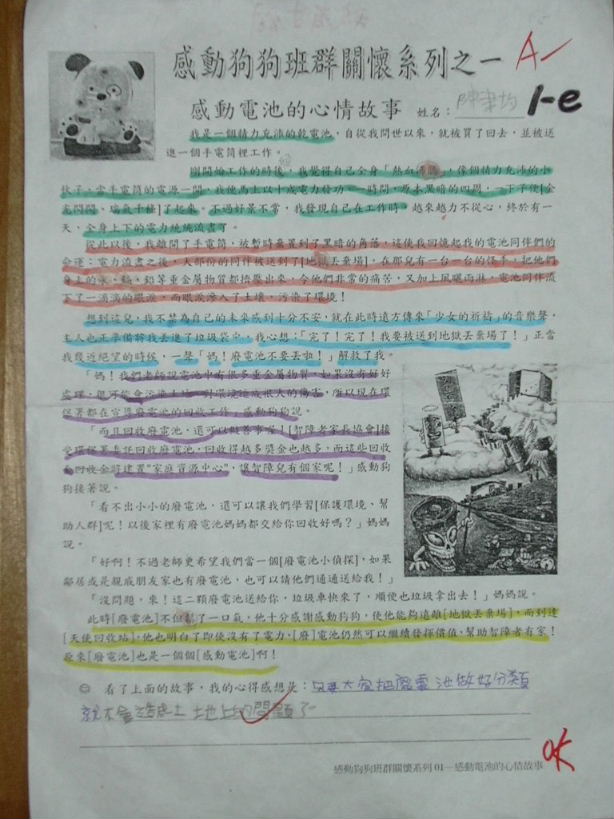 感動狗狗班群關懷系列之一
A-
感動電池的心情故事 姓名：
1-e
我是一個精力充沛的乾電池，自從我問世以來，就被買了回去，並被送
進一個手電筒裡工作。
剛開始工作的時後，我覺得自己全身「熱血沸騰」，像個精力充沛的小
伙子，當手電筒的電源一開，我便馬上以十成電力發功，一時間，原本黑暗的四周，一下子便[金
光閃閃、瑞氣千條]了起來。不過好景不常，我發現自己在工作時，越來越力不從心，終於有一
天，全身上下的電力統統流盡了。
從此以後，我離開了手電筒，被暫時棄置到了黑暗的角落，這使我回憶起我的電池同伴們的
命運：電力流盡之後，大部份的同伴被送到了[地獄丟棄場]，在那兒有一台一台的怪手，把他們
身上的汞、鎘、鉛等重金屬物質都擠壓出來，令他們非常的痛苦，又加上風曬雨淋，電池同伴流
下了一滴滴的眼淚，而眼淚滲入了土壤，污染了環境！
想到這兒，我不禁為自己的未來感到十分不安，就在此時遠方傳來「少女的祈禱」的音樂聲，
主人也正準備將我丟進了垃圾袋中，我心想：「完了！完了！我要被送到地獄丟棄場了！」正當
我幾近絕望的時候，一聲「媽！廢電池不要丟啦！」解救了我。
「媽！我們老師說電池中有很多重金屬物質，如果沒有好好
處理，很可能會污染土地，對環境造成很大的傷害，所以現在環
保署都在宣導廢電池的回收工作」感動狗狗說。
「而且回收廢電池，還可以做善事喔！[智障者家長協會]接
受環保署委託回收廢電池，回收得越多獎金也越多，而這些回收
的回收金將建置"家庭資源中心"，讓智障兒有個家呢！」感動狗
狗接著說。
「看不出小小的廢電池，還可以讓我們學習[保護環境、幫
助人群]呢！以後家裡有廢電池媽媽都交給你回收好嗎？」媽媽
說。
「好啊！不過老師更希望我們當一個[廢電池小偵探]，如果
鄰居或是親戚朋友家也有廢電池，也可以請他們通通送給我！」
「沒問題，來！這二顆廢電池送給你，垃圾車快來了，順便也垃圾拿出去！」媽媽說。
此時[廢電池]不但鬆了一口氣，他十分感謝感動狗狗，使他能夠遠離[地獄丟棄場]，而到達
[天使回收站]，他也明白了即使沒有了電力，[廢]電池仍然可以繼續發揮價值，幫助智障者有家！
原來[廢電池]也是一個個[感動電池]啊！
☺ 看了上面的故事，我的心得感想是：只要大家把廢電池做好分類
就不會造成土地上的問題了
OK
感動狗狗班群關懷系列 01—感動電池的心情故事